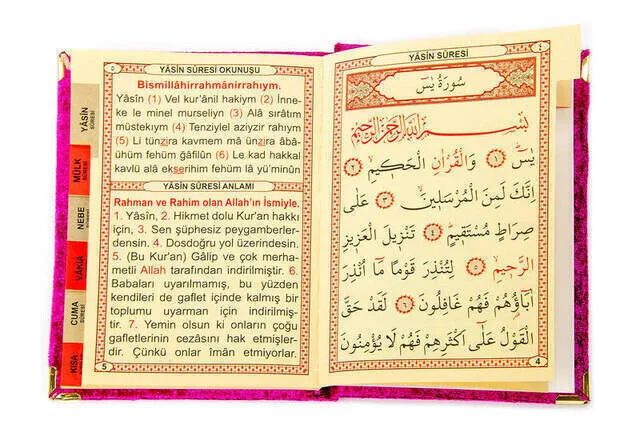 YÂSÎN SÛRESİ OKUNUŞU
٥
Bismillâhirrahmânirrahıym.
Yâsîn (1) Vel kur'ânil hakiym (2) İnne-
ke le minel murseliyn (3) Alâ sırâtım
müstekıym (4) Tenziylel aziyzir rahıym
(5) Li tünzira kavmem mâ ünzira âbâ-
ühüm fehüm ğâfilûn (6) Le kad hakkal
kavlü alâ ekserihim fehüm lâ yü'minûn
YÂSÎN SÛRESİ ANLAMI
Rahman ve Rahim olan Allah'ın İsmiyle.
1. Yâsîn, 2. Hikmet dolu Kur'an hakkı
için, 3. Sen şüphesiz peygamberler-
densin. 4. Dosdoğru yol üzerindesin.
5. (Bu Kur'an) Gâlip ve çok merha-
metli Allah tarafından indirilmiştir. 6.
Babaları uyarılmamış, bu yüzden
kendileri de gaflet içinde kalmış bir
toplumu uyarman için indirilmiş-
tir. 7. Yemin olsun ki onların çoğu
gafletlerinin cezasını hak etmişler-
dir. Çünkü onlar îman etmiyorlar.
5
YÂSİN
SÛRESİ
MÜLK
SÛRESİ
NEBE
SÛRESİ
VÂKIA
CUMA
SÛRESİ
KISA
YÂSÎN SÛRESİ
٤
سُورَةُ يٰسٓ
بِسْمِ اللّٰهِ الرَّحْمٰنِ الرَّحِيمِ
يٰسٓ ﴿١﴾ وَالْقُرْاٰنِ الْحَكِيمِ ﴿٢﴾
اِنَّكَ لَمِنَ الْمُرْسَلِينَ ﴿٣﴾ عَلٰى
صِرَاطٍ مُسْتَقِيمٍ ﴿٤﴾ تَنْزِيلَ الْعَزِيزِ
الرَّحِيمِ ﴿٥﴾ لِتُنْذِرَ قَوْمًا مَٓا اُنْذِرَ
اٰبَٓاؤُهُمْ فَهُمْ غَافِلُونَ ﴿٦﴾ لَقَدْ حَقَّ
الْقَوْلُ عَلٰٓى اَكْثَرِهِمْ فَهُمْ لَا يُؤْمِنُونَ
4